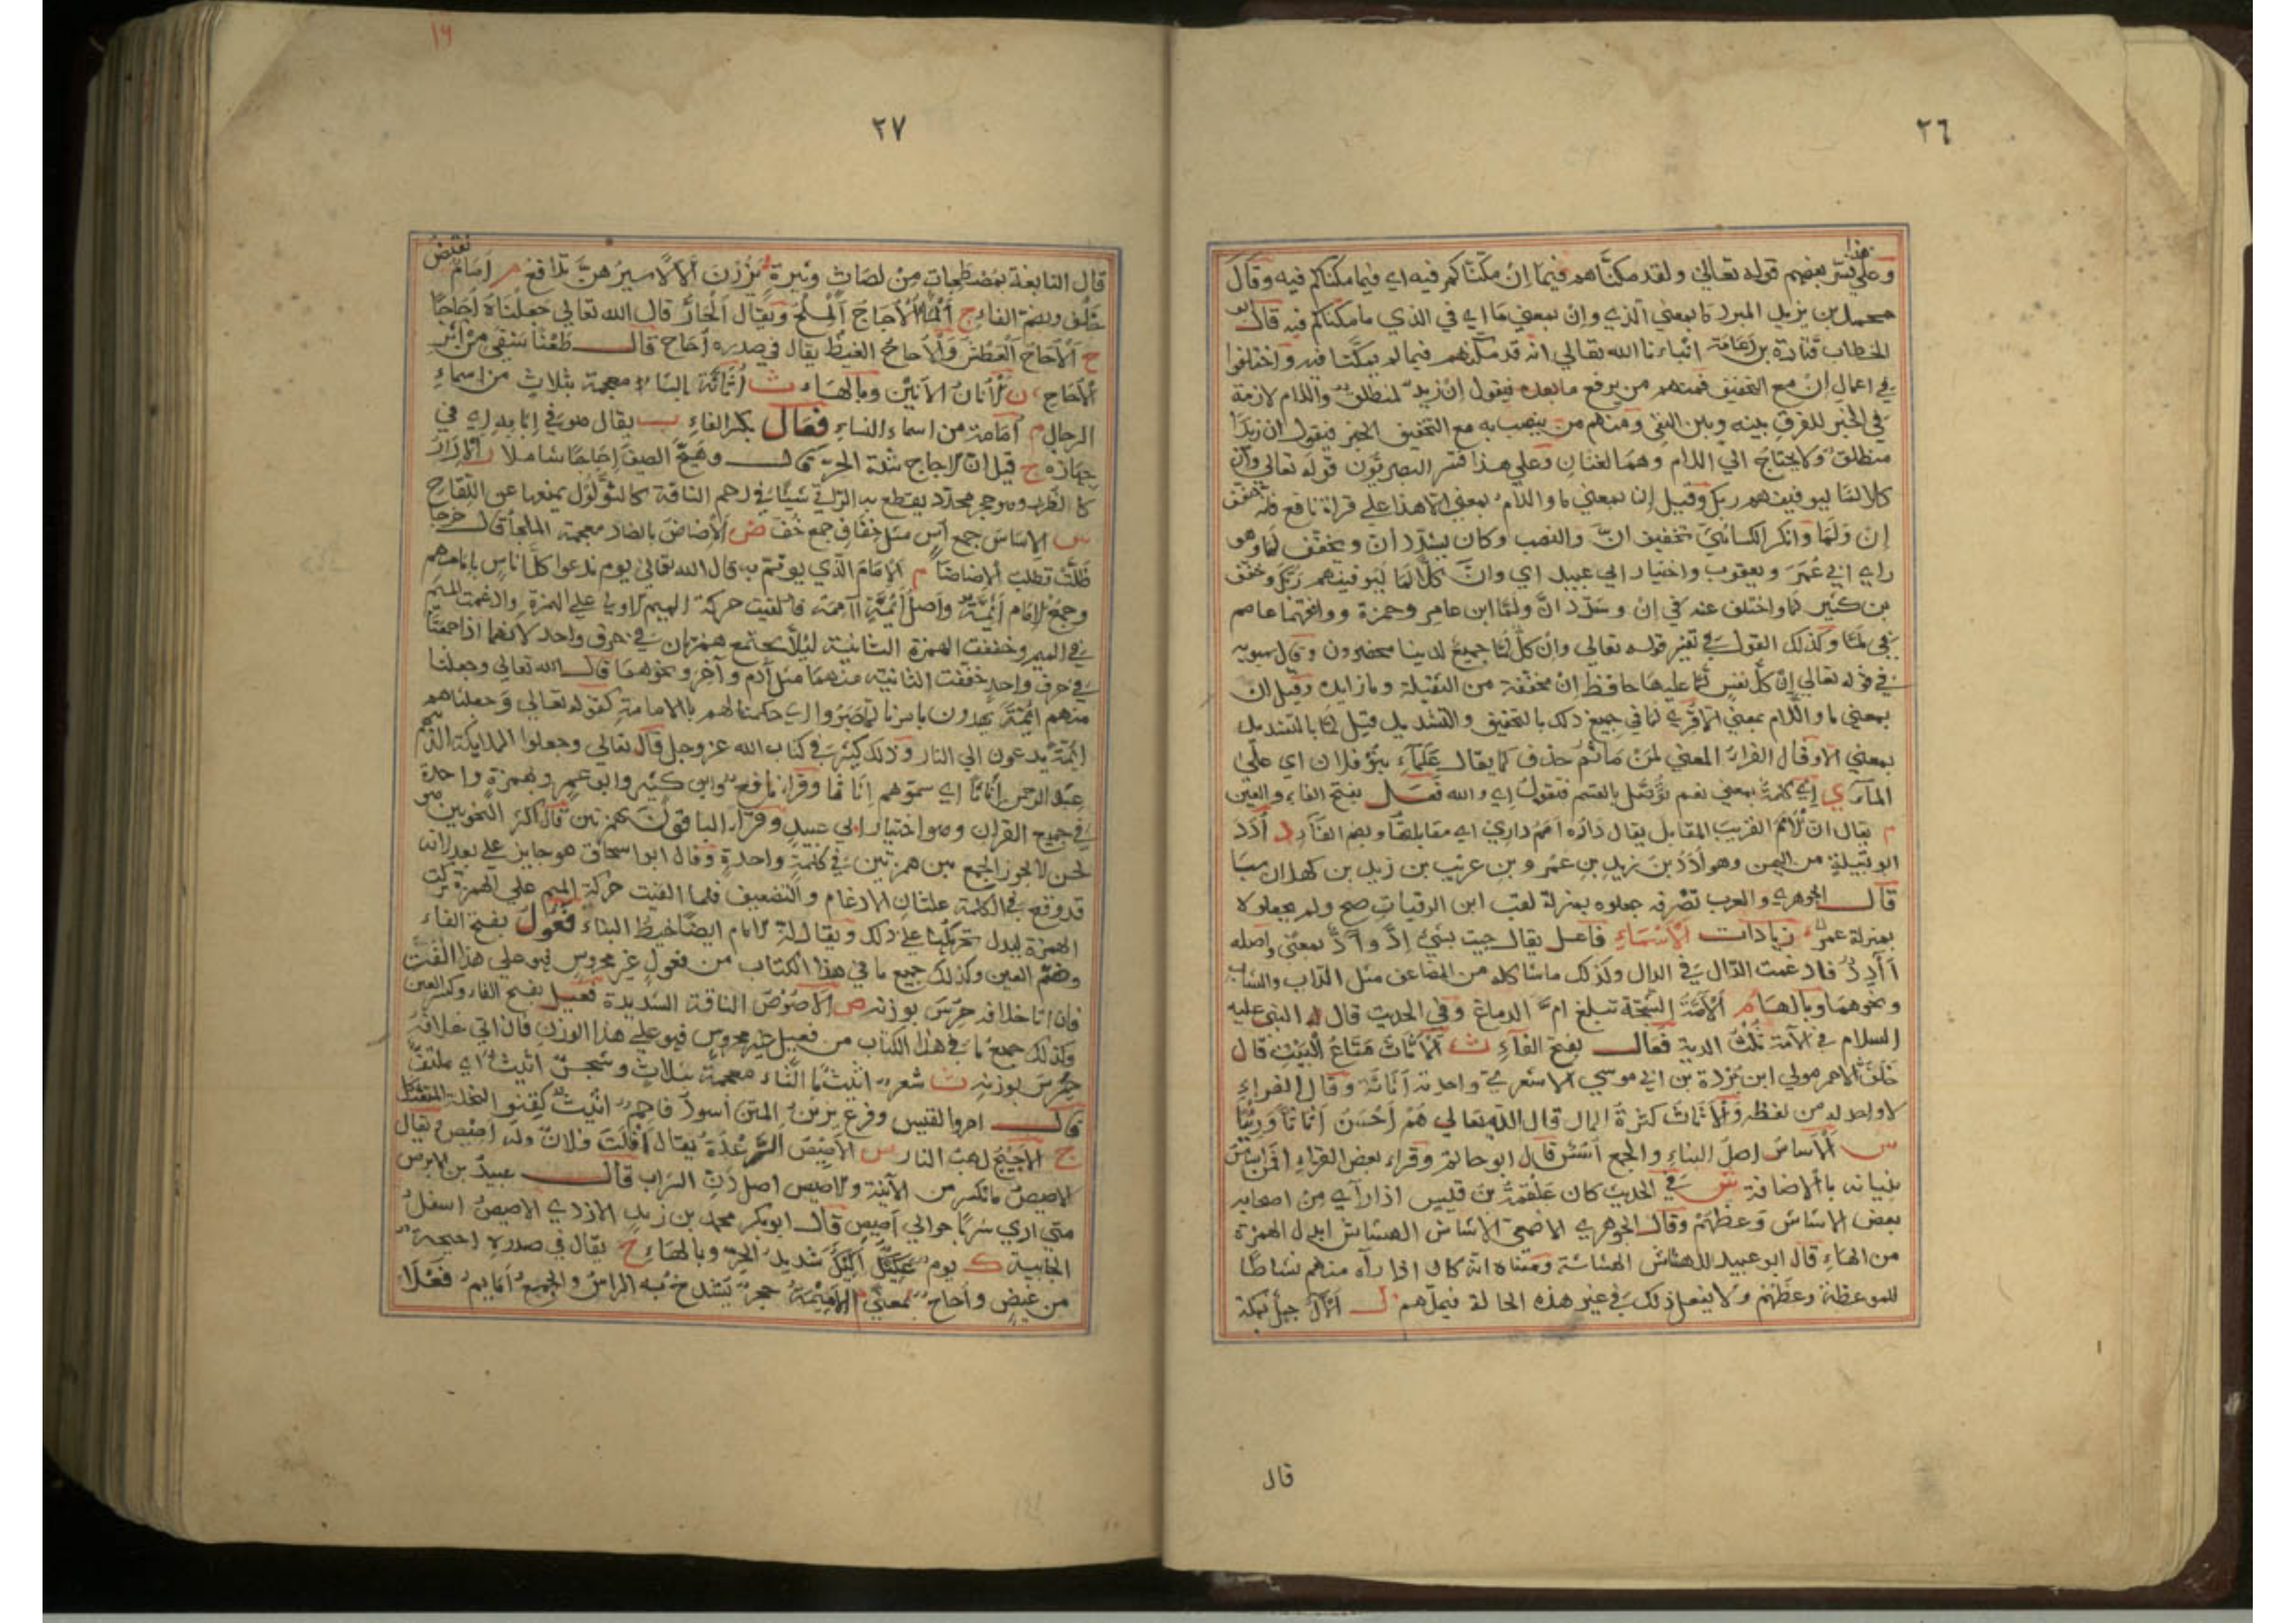 ٢٦
وعلى هذا فسر بعضهم قوله تعالى ولقد مكناهم فيما اِنْ مكّنّاكم فيه اي فيما مكناكم فيه وقال
محمد بن يزيد المبرد ما بمعني الذي وإن بمعني ما اي في الذي ما مكناكم فيه قال ابو
الخطاب قتادة بن دعامة انباءنا الله تعالي انه قد مكّنهم فيما لم يمكّنا فيه واختلفوا
في اعمال اِنْ مع التخفيف فمنهم من يرفع ما بعده فيقول اِنْ زيدٌ لمنطلقٌ واللام لازمة
في الخبر للفرق بينه وبين النفي ومنهم من ينصب به مع التخفيف الخبر فيقول ان زيدًا
منطلقٌ ولا يحتاج الي اللام وهما لغتان وعلي هذا فسر البصريّون قوله تعالى وانْ
كلا لمّا ليوفينهم ربك وقيل إن بمعني ما واللام بمعني الا هذا علي قراة نافع فانه خفف
إن ولما وانكر الكسائيّ تخفيف انّ والنصب وكان يشدّد ان ويخفّف لما وهو
راي ابي عُمَرَ ويعقوب واختيار ابي عبيد اي وانّ كلّا لما ليوفينهم ربّك وخفف
بن كثير لما واختلف عنه في اِنْ وشدّد انّ ولمّا ابن عامر وحمزة ووافقهما عاصم
في لمّا وكذلك القول في تفسير قوله تعالي وانْ كلّ لمّا جميعٌ لدينا محضرون وقال سيبويه
في قوله تعالي اِنْ كلّ نفسٍ لمّا عليها حافظ اِنْ مخفّفة من الثقيلة وما زايدة وقيل اِن
بمعني ما واللام بمعني الا قري لما في جميع ذلك بالتخفيف والتشديد قيل لمّا بالتشديد
بمعني الا وقال الفراءُ المعني لمنْ ما ثم حذف كما يقال عَلْمَاءِ بنو فلان اي على
الماءِ ي اِيْ كلمة بمعني نعم توصل بالقسم فتقول اِي والله فَعَـل بفتح الفاء والعين
م يقال ان الاَمَمُ القريب المقابل يقال داره امَمُ داري اي مقابلها وبضم الفاء د أُدَد
ابو قبيلة من اليمن وهو أُدَدُ بن زيد بن عَمْرو بن عريب بن زيد بن كهلان بن سبا
قال الجوهري والعرب تصرفه جعلوه بمنزلة لقب ابن الرقيات صح ولم يجعلوه
بمنزلة عمرٍ زيادات الاسْمَاءِ فاعـل يقال جيت بشيءٍ اِدٍّ وآدٍّ بمعنًى واصله
أآدِدٌ فادغمت الدّال في الدال وكذلك ما شاكله من المضاعف مثل الدّاب والشاب
ونحوهما وبالهاءِ م الآمَّةُ الشجّة تبلغ امَّ الدماغ وفي الحديث قال له النبي عليه
السلام في الآمة ثُلثُ الدية فَعَال بفتح الفاءِ ث الاَثَاثُ مَتَاعُ البَيْتِ قال
خَلَفٌ الاحمر مولي ابن بُرْدة بن ابي موسي الاشعريّ واحدته اَثَاثَة وقال الفراءِ
لا واحد له من لفظه والاثاث كثرة المال قال الله تعالي هُمْ اَحْسَنُ اَثَاثًا وَرِئْيًا
س الاَساسُ اصلُ البناءِ والجمع اُسُسٌ قال ابو حاتم وقراء بعض القراءِ افمن اساسُ
بنيانه باالاضافة ش في الحديث كان عَلْقمةُ بن قيس اذا راَي من اصحابه
بعض الاشاش وَعظهم وقال الجوهري الاصمعي الاشاش الهشاش ابدل الهمزة
من الهاءِ قال ابو عبيد للهشاش الهشاشة ومعناه انه كان اذا رآه منهم نشاطًا
للموعظة وعظهم ولا يفعل ذلك في غير هذه الحالة فيملهم ل اَثَالُ جبلٌ بمكة
قال
١٦
٢٧
قال النابغة بمصطحبات من لصافٍ وثبرةٍ يَزُرْنَ اَلالا سيرُهنّ تدافع م اَمَامُ نقيض
خَلْف وبضم الفاءِ ج الماءُ الاُجاج المِلحُ ويقال الحارّ قال الله تعالي جعلناه اُجاجًا
ح الاُحَاحُ العَطَش والاُحَاحُ الغيظ يقال في صدره اُحَاح قال طَعْنًا شفي من اثر
الاُحَاحِ ن الاُنَانُ الاَنين وبالهاء ث اُثَاثَة بالثاء معجمة بثلاثٍ من اسماءِ
الرجال م اُمَامة من اسماء النساء فِعَال بكسر الفاء ب يقال هو في اِبّابه اي في
جهازه ج قيل ان الاِجاج شدة الحرّ قال وهَيّج الصيفُ اِجَاجًا شاملا ر الاِرَارُ
كالظُرر وهو حجر محدّد يقطع به الرّاعي شيئًا في رحم الناقة كالثُّؤْلُول يمنعها عن اللقاح
س الاِسَاسَ جمع اُسّ مثل خِفَافٍ جمع خُفّ ض الاِضاضُ بالضاد معجمة الملجأ قال خرجا
ظَلّتْ تطلب الاضاضا م الاِمَام الّذي يؤتم به قال الله تعالي يوم ندعوا كلّ اناسٍ بامامهم
وجمعُ الاِمَام اَئِمَّةٌ واَصلُ اَئِمَّةٍ اَأمِمَة فالقيت حركة الميم الاولي علي الهمزةِ وادغمت الميم
في الميم وخففت الهمزة الثانية لئلاّ يجتمع همزتان في حرف واحد لانهما اذا اجمعتا
في حرف واحد خففت الثانية منهما مثل آدم وآخر ونحوهما قال الله تعالي وجعلنا
منهم ائمّةً يهدون باَمرنا لما صَبَرُوا اي حكمنا لهم بالامامة كقوله تعالي وجعلناهم
ائمّةً يدعون الي النار وذلك كثير في كتاب الله عز وجل قال تعالي وجعلوا الملايكة الذين هم
عبد الرحمن اِنَاثًا اي سمّوهم اِنَاثًا وقرا نافعٌ وابن كثير وابو عمرٍو بهمزةٍ واحدة
في جميع القران وهو اختيار ابي عبيدٍ وقرَأَ الباقون بهمزتين قال اكثر النحويين هو
لحن لا يجوز الجمع بين همزتين في كلمةٍ واحدةٍ وقال ابوا سحاق هو جايز علي بعدٍ لانه
قد وقع في الكلمة علتان الادغام والتضعيف فلما القيت حركة الميم علي الهمزة تركت
الهمزة ليدل تحركها علي ذلك ويقال انّ الامام ايضًا خيط البناءِ فَعُولٌ بفتح الفاء
وضمّ العين وكذلك جميع ما في هذا الكتاب من فعولٍ غير محروسٍ فهو علي هذا الفَتْ
فان اتا خلافه حرّس بوزنه ص الاَصُوصُ الناقة الشديدة فعيـل بفتح الفاء وكسر العين
وكذلك جميعُ ما في هذا الكتاب من فعيل غير محروسٍ فهو علي هذا الوزن فان اتي خلافهُ
حُرّس بوزنه ث شعرٌ اثيثٌ بالثّاء معجمةً بثلاثٍ وشجرٌ اثيثٌ اي ملتفّ
قال امروا لقيس وفرعٍ يزينُ المتنَ اَسودَ فاحمٍ اثيثٍ كقنوِ النخلة المتعثكل
ج الاَجيج لهبُ النار ص الاَصيصُ الرِّعْدَةُ يقال اَفْلَتَ فلانٌ وله اَصيصٌ ويقال
الاصيصُ ما تكسر من الآنية والاصيص اصل دَنِّ الشراب قال عبيدُ بن الابرص
متي اري شربًا حوالي اَصيصٍ قال ابو بكر محمد بن زيد الازدي الاصيصُ اسفلُ
الخابية ك يومٌ عَكيكٌ اَكيكٌ شديد الحرّ وبالهاءِ ح يقال في صدره اَحيحة
من غيضٍ واُحاحٌ بمعني م الاَميْمَةُ حجرٌ يُشدخ به الراسُ والجمعُ اَمايم فَعْلَا